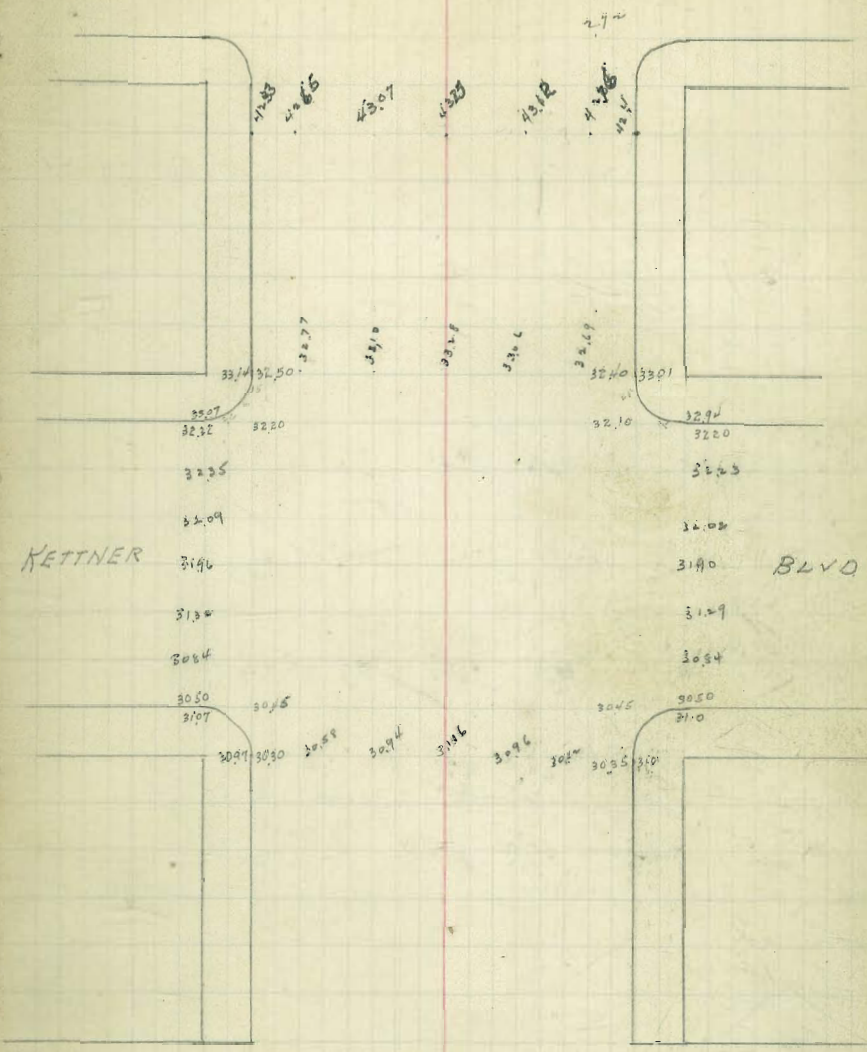 42.33 43.07 43.25
32.77 33.10 33.28 33.06 32.69
33.14 32.50 32.40 33.01
33.07 32.94
32.32 32.20 32.10 32.20
32.35 32.23
32.09 32.02
KETTNER 31.96 31.90 BLVD
31.32 31.29
30.84 30.84
30.50 30.45 30.45 30.50
31.07 31.0
30.97 30.30 30.58 30.94 30.96 30.35